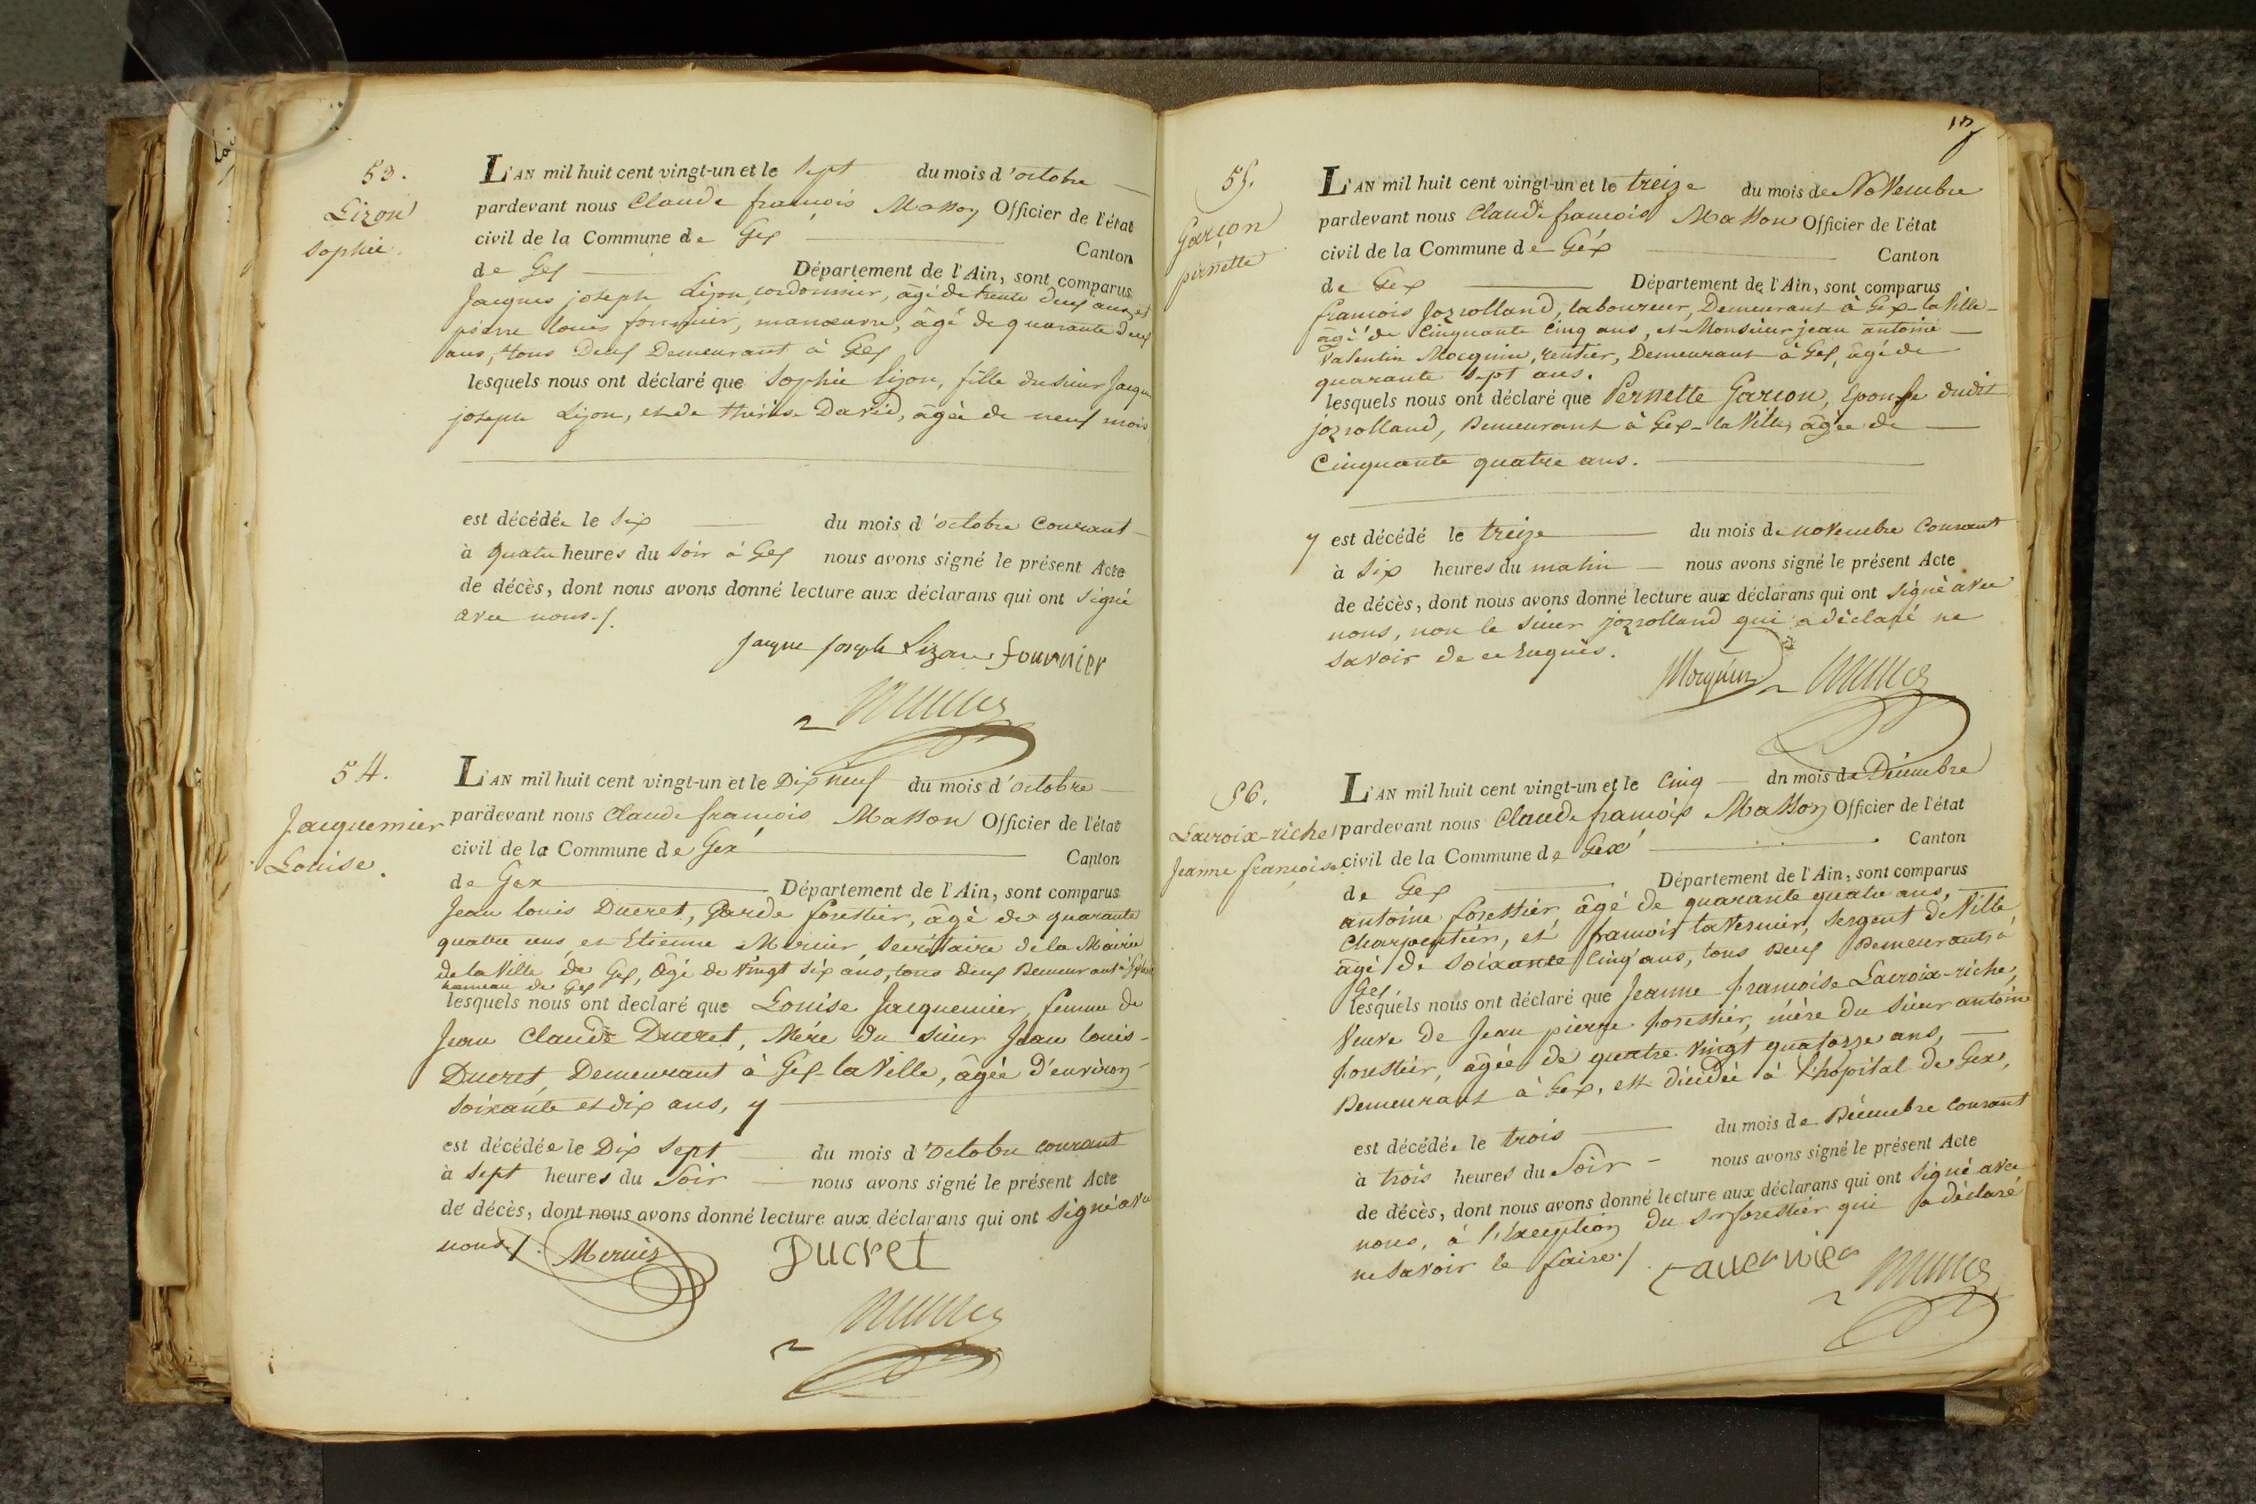 53.
Lizon
Sophie.
L'AN mil huit cent vingt-un et le sept du mois d'octobre
pardevant nous Claude françois Masson Officier de l'état
civil de la Commune de Gex Canton
de Gex Département de l'Ain, sont comparus
Jacques joseph Lizon, cordonnier, âgé de trente deux ans, et
pierre louis fournier, manœuvre, âgé de quarante deux
ans, tous Deux Demeurant à Gex
lesquels nous ont déclaré que Sophie lizon, fille du sieur Jacque
joseph Lizon, et de thérèse David, âgée de neuf mois
est décédée le six du mois d'octobre courant
à quatre heures du soir à Gex nous avons signé le présent Acte
de décès, dont nous avons donné lecture aux déclarans qui ont signé
avec nous./.
Jacque Joseph Lizon fournier
54.
Jacquemier
Louise.
L'AN mil huit cent vingt-un et le Dix neuf du mois d'octobre
pardevant nous Claude françois Masson Officier de l'état
civil de la Commune de Gex Canton
de Gex Département de l'Ain, sont comparus
Jean louis Ducret, Garde forestier, âgé de quarante
quatre ans, et Etienne Mercier, Secrétaire de la Mairie
de la Ville de Gex, âgé de vingt six ans, tous deux Demeurant à
hameau de Gex
lesquels nous ont declaré que Louise Jacquemier, femme de
Jean Claude Ducret, Mére du sieur Jean louis
Ducret, Demeurant à Gex-la Ville, âgée d'environ
soixante et dix ans, y
est décédée le Dix sept du mois d'octobre courant
à sept heures du Soir nous avons signé le présent Acte
de décès, dont nous avons donné lecture aux déclarans qui ont signé avec
nous./. Mercier Ducret
17
55.
Garçon
pernette
L'AN mil huit cent vingt-un et le treize du mois de Novembre
pardevant nous Claude françois Masson Officier de l'état
civil de la Commune de Géx Canton
de Gex Département de l'Ain, sont comparus
francois Jozrolland, laboureur, Demeurant à Gex-la Ville
âgé de Cinquante Cinq ans, et Monsieur jean antoine
Valentin Mocquin, rentier, Demeurant à Gex, âgé de
quarante sept ans.
lesquels nous ont déclaré que Pernette Garcon, Epouse dudit
jozrolland, Demeurant à Gex-la Ville, âgée de
Cinquante quatre ans.
y est décédé le treize du mois de novembre courant
à six heures du matin nous avons signé le présent Acte
de décès, dont nous avons donné lecture aux déclarans qui ont signé avec
nous, non le sieur jozrolland qui a déclaré ne
savoir de ce Enquis.
Mocquin
56.
Lacroix-riche
Jeanne françoise
L'AN mil huit cent vingt-un et le cinq dn mois de Décembre
pardevant nous Claude françois Masson Officier de l'état
civil de la Commune de Gex Canton
de Gex Département de l'Ain, sont comparus
antoine forestier, âgé de quarante quatre ans,
Charpentier, et francois tavernier, Sergent de Ville
âgé de soixante Cinq ans, tous Deux Demeurants à
Gex
lesquels nous ont déclaré que Jeanne françoise Lacroix-riche,
Veuve de Jean pierre forestier, mère du sieur antoine
forestier, âgée de quatre vingt quatorze ans,
Demeurant à Gex, est décédée à l'hopital de Gex,
est décédée le trois du mois de Décembre courant
à trois heures du Soir nous avons signé le présent Acte
de décès, dont nous avons donné lecture aux déclarans qui ont signé avec
nous, à l'Exception du Sr forestier qui a déclaré
ne savoir le faire./. tavernier